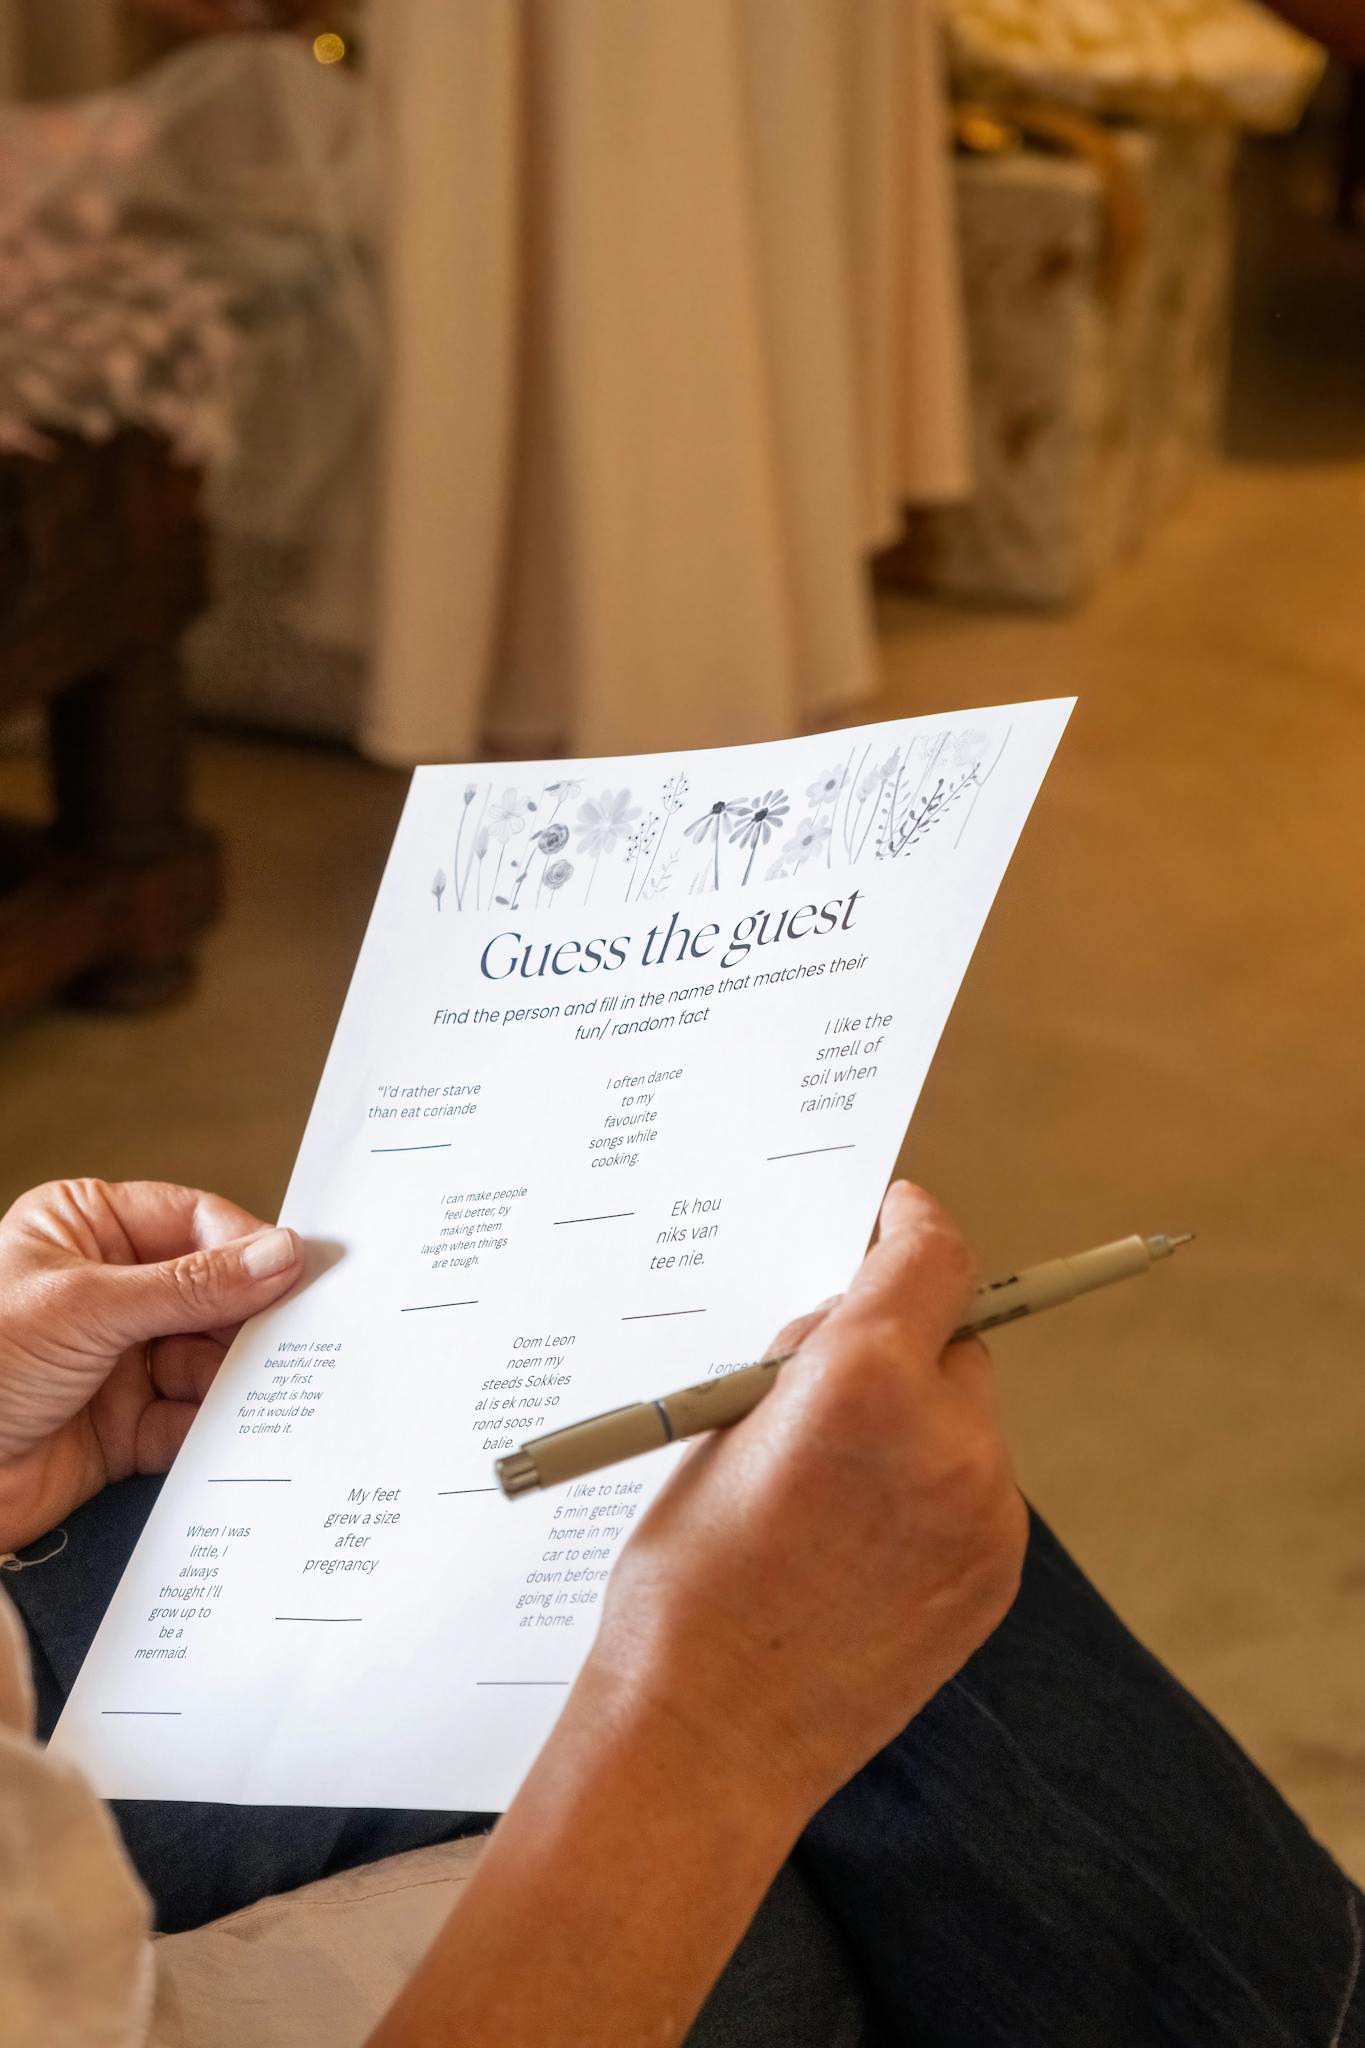 Guess the guest
Find the person and fill in the name that matches their
fun/ random fact
"I'd rather starve
than eat coriande
I often dance
to my
favourite
songs while
cooking.
I like the
smell of
soil when
raining
I can make people
feel better, by
making them
laugh when things
are tough.
Ek hou
niks van
tee nie.
When I see a
beautiful tree,
my first
thought is how
fun it would be
to climb it.
Oom Leon
noem my
steeds Sokkies
al is ek nou so
rond soos n
balie.
I once
When I was
little, I
always
thought I'll
grow up to
be a
mermaid.
My feet
grew a size
after
pregnancy
I like to take
5 min getting
home in my
car to eine
down before
going in side
at home.